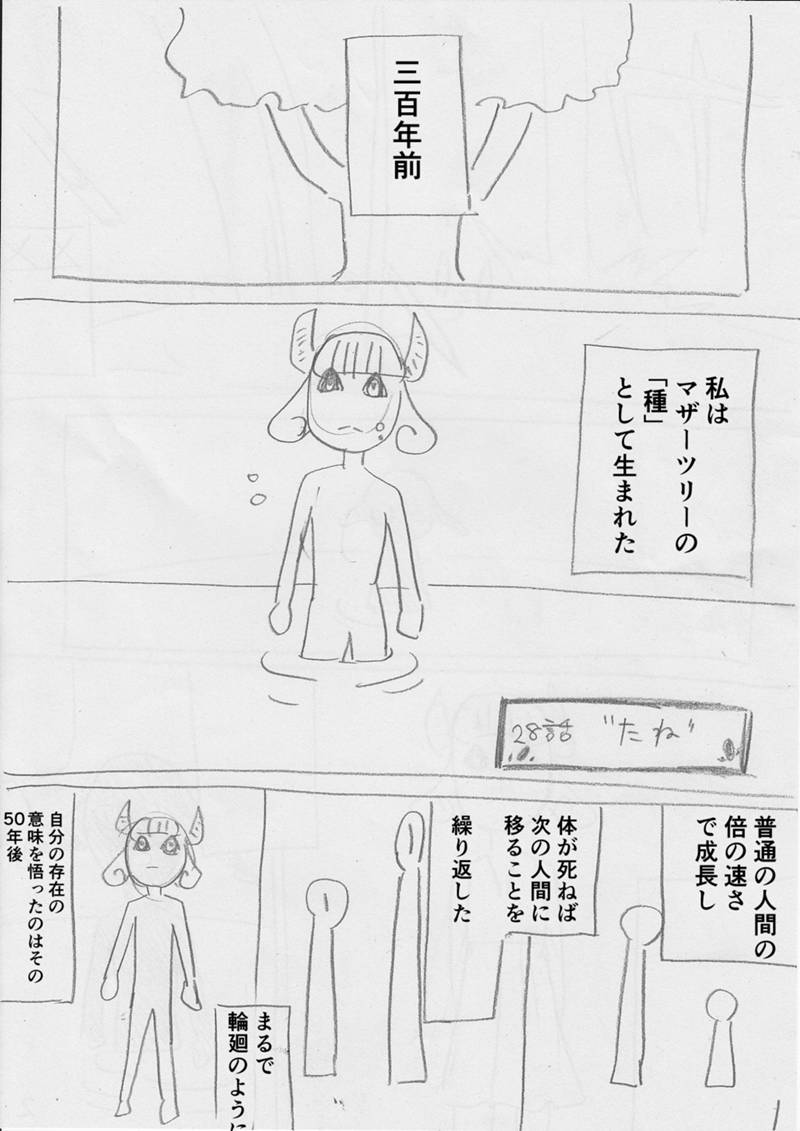 三百年前
私は
マザーツリーの
「種」
として生まれた
28話 "たね"
普通の人間の
倍の速さ
で成長し
体が死ねば
次の人間に
移ることを
繰り返した
まるで
輪廻のように
自分の存在の
意味を悟ったのはその
50年後
1